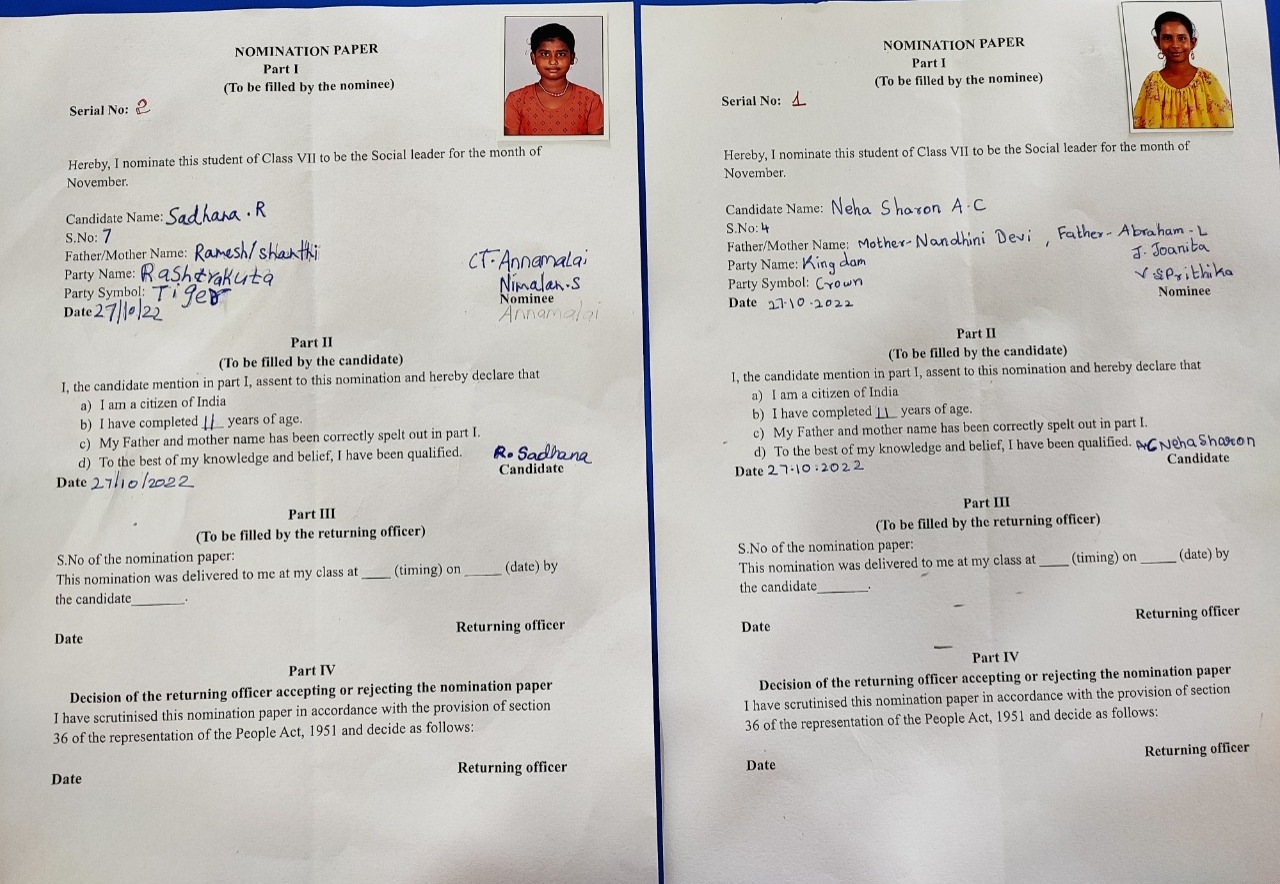 NOMINATION PAPER
Part I
(To be filled by the nominee)
Serial No: 2
Hereby, I nominate this student of Class VII to be the Social leader for the month of
November.
Candidate Name: Sadhana . R
S.No: 7
Father/Mother Name: Ramesh/ Shanthi
Party Name: Rashtrakuta
Party Symbol: Tiger
Date 27/10/22
CT. Annamalai
Nimalan.S
Nominee
Annamalai
Part II
(To be filled by the candidate)
I, the candidate mention in part I, assent to this nomination and hereby declare that
a) I am a citizen of India
b) I have completed 11 years of age.
c) My Father and mother name has been correctly spelt out in part I.
d) To the best of my knowledge and belief, I have been qualified.
R. Sadhana
Candidate
Date 27/10/2022
Part III
(To be filled by the returning officer)
S.No of the nomination paper:
This nomination was delivered to me at my class at ____ (timing) on _____ (date) by
the candidate_______.
Returning officer
Date
Part IV
Decision of the returning officer accepting or rejecting the nomination paper
I have scrutinised this nomination paper in accordance with the provision of section
36 of the representation of the People Act, 1951 and decide as follows:
Returning officer
Date
NOMINATION PAPER
Part I
(To be filled by the nominee)
Serial No: 1
Hereby, I nominate this student of Class VII to be the Social leader for the month of
November.
Candidate Name: Neha Sharon A.C
S.No: 4
Father/Mother Name: Mother-Nandhini Devi , Father- Abraham-L
Party Name: Kingdom
Party Symbol: Crown
Date 27.10.2022
J. Joanita
V S Prithika
Nominee
Part II
(To be filled by the candidate)
I, the candidate mention in part I, assent to this nomination and hereby declare that
a) I am a citizen of India
b) I have completed 11 years of age.
c) My Father and mother name has been correctly spelt out in part I.
d) To the best of my knowledge and belief, I have been qualified.
A.C Neha Sharon
Candidate
Date 27.10.2022
Part III
(To be filled by the returning officer)
S.No of the nomination paper:
This nomination was delivered to me at my class at ____ (timing) on _____ (date) by
the candidate_______.
Returning officer
Date
Part IV
Decision of the returning officer accepting or rejecting the nomination paper
I have scrutinised this nomination paper in accordance with the provision of section
36 of the representation of the People Act, 1951 and decide as follows:
Returning officer
Date